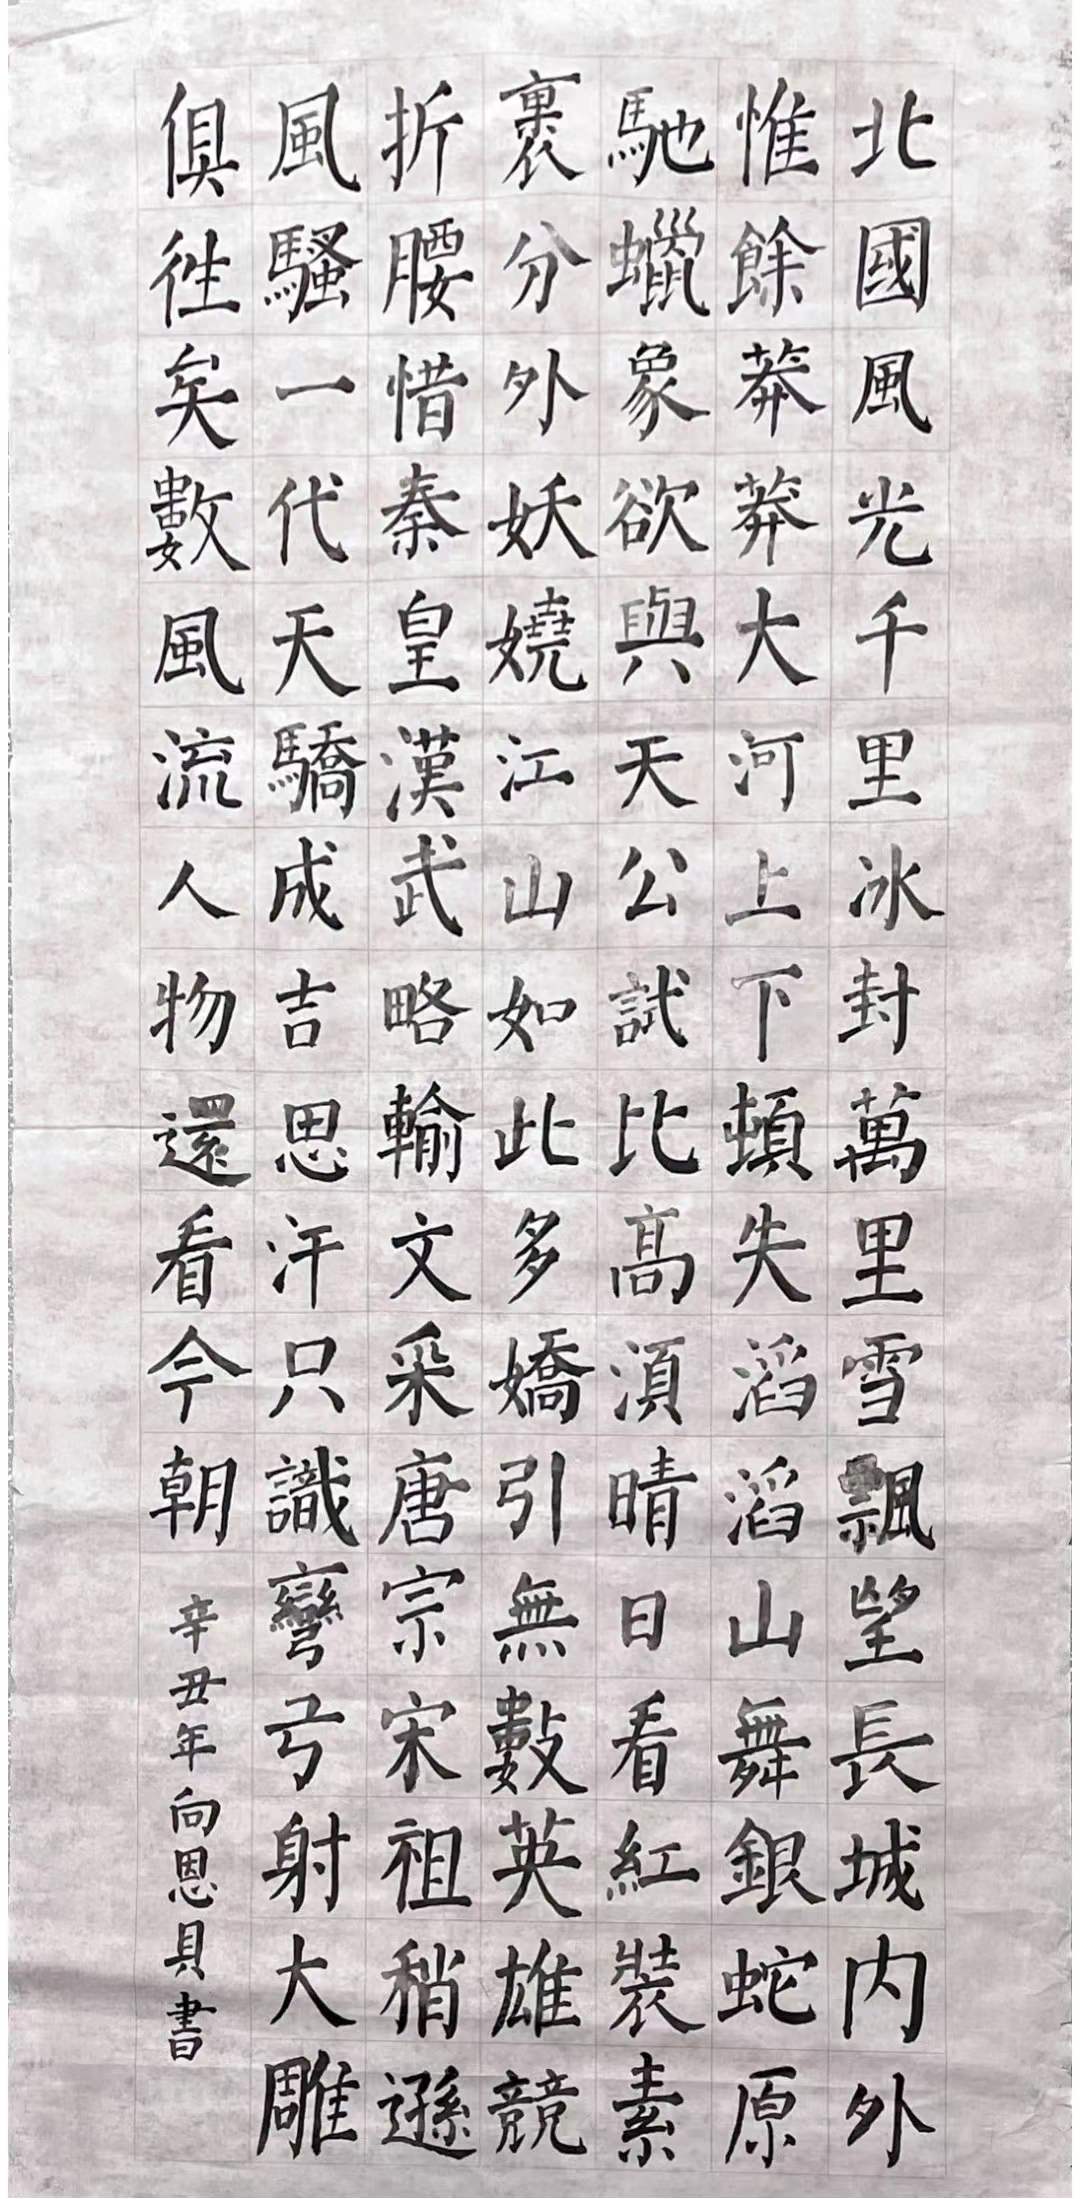 北國風光千里冰封萬里雪飄望長城内外
惟餘莽莽大河上下頓失滔滔山舞銀蛇原
馳蠟象欲與天公試比髙湏晴日看紅裝素
裹分外妖嬈江山如此多嬌引無數英雄競
折腰惜秦皇漢武略輸文采唐宗宋祖稍遜
風騷一代天驕成吉思汗只識彎弓射大雕
俱徃矣數風流人物還看今朝
辛丑年向恩貝書